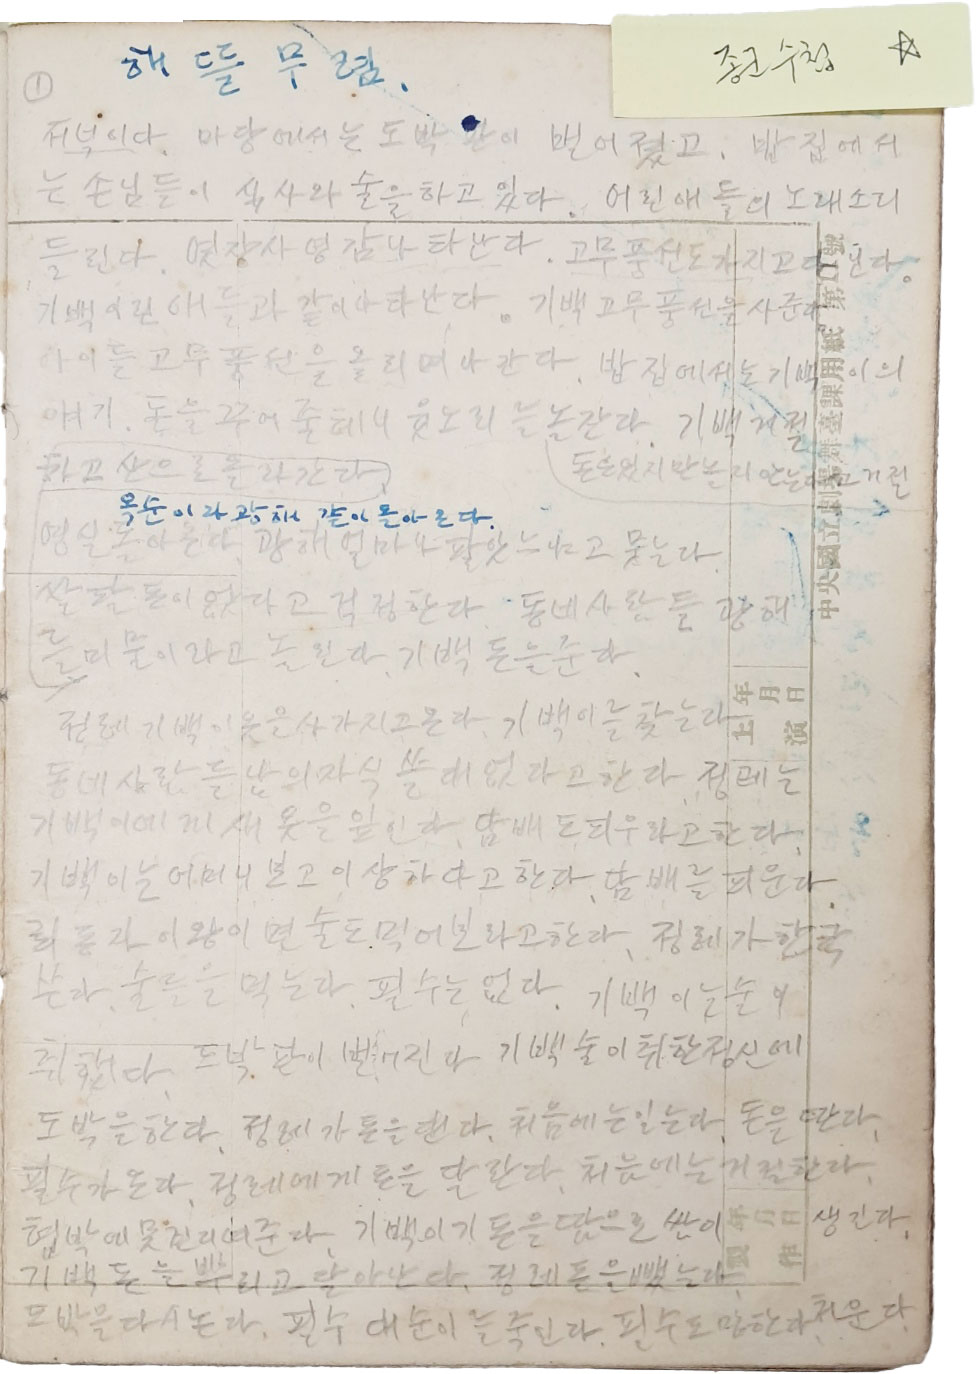 종군수첩 ☆
①
해뜰무렵.
저녁이다. 마당에서는 도박판이 벌어졌고. 밥집에서
는 손님들이 식사와 술을하고있다. 어린애들의 노래소리
들린다. 엿장사영감나타난다. 고무풍선도가지고다닌다.
기백어린애들과같이나타난다. 기백고무풍선을사준다
아이들고무풍선을올리며나간다. 밥집에서는기백이의
얘기. 돈을꾸어줄테니윷노리를놀잔다. 기백거절
하고산으로올라간다.
돈은있지만놀지안는다고거절
옥순이와광해같이돌아온다.
영실돌아온다. 광해얼마나팔았느냐고뭇는다.
쌀팔돈이없다고걱정한다. 동네사람들광해
를 이라고놀린다. 기백돈을준다.
정례기백이옷을사가지고온다. 기백이를찾는다
동네사람들남의자식쓸데없다고한다. 정례는
기백이에게새옷을입힌다. 담배도피우라고한다.
기백이는어머니보고이상하다고한다. 담배를피운다
이왕이면술도먹어보라고한다. 정례가한턱
쓴다. 술들을먹는다. 필수는없다. 기백이는술이
취했다. 도박판이벌어진다 기백술이취한정신에
도박을한다. 정례가돈을댄다. 처음에는잃는다. 돈을딴다.
필수가온다. 정례에게돈을달란다. 처음에는거절한다.
협박에못견디어준다. 기백이기돈을땄음으로싸움이생긴다.
기백돈을뿌리고달아난다. 정례돈을뺐는다.
도박을다시논다. 필수대순이를죽인다. 필수도망한다.
中央國立劇場舞臺課用紙 第 號
上演 年 月 日
年 月 日 作